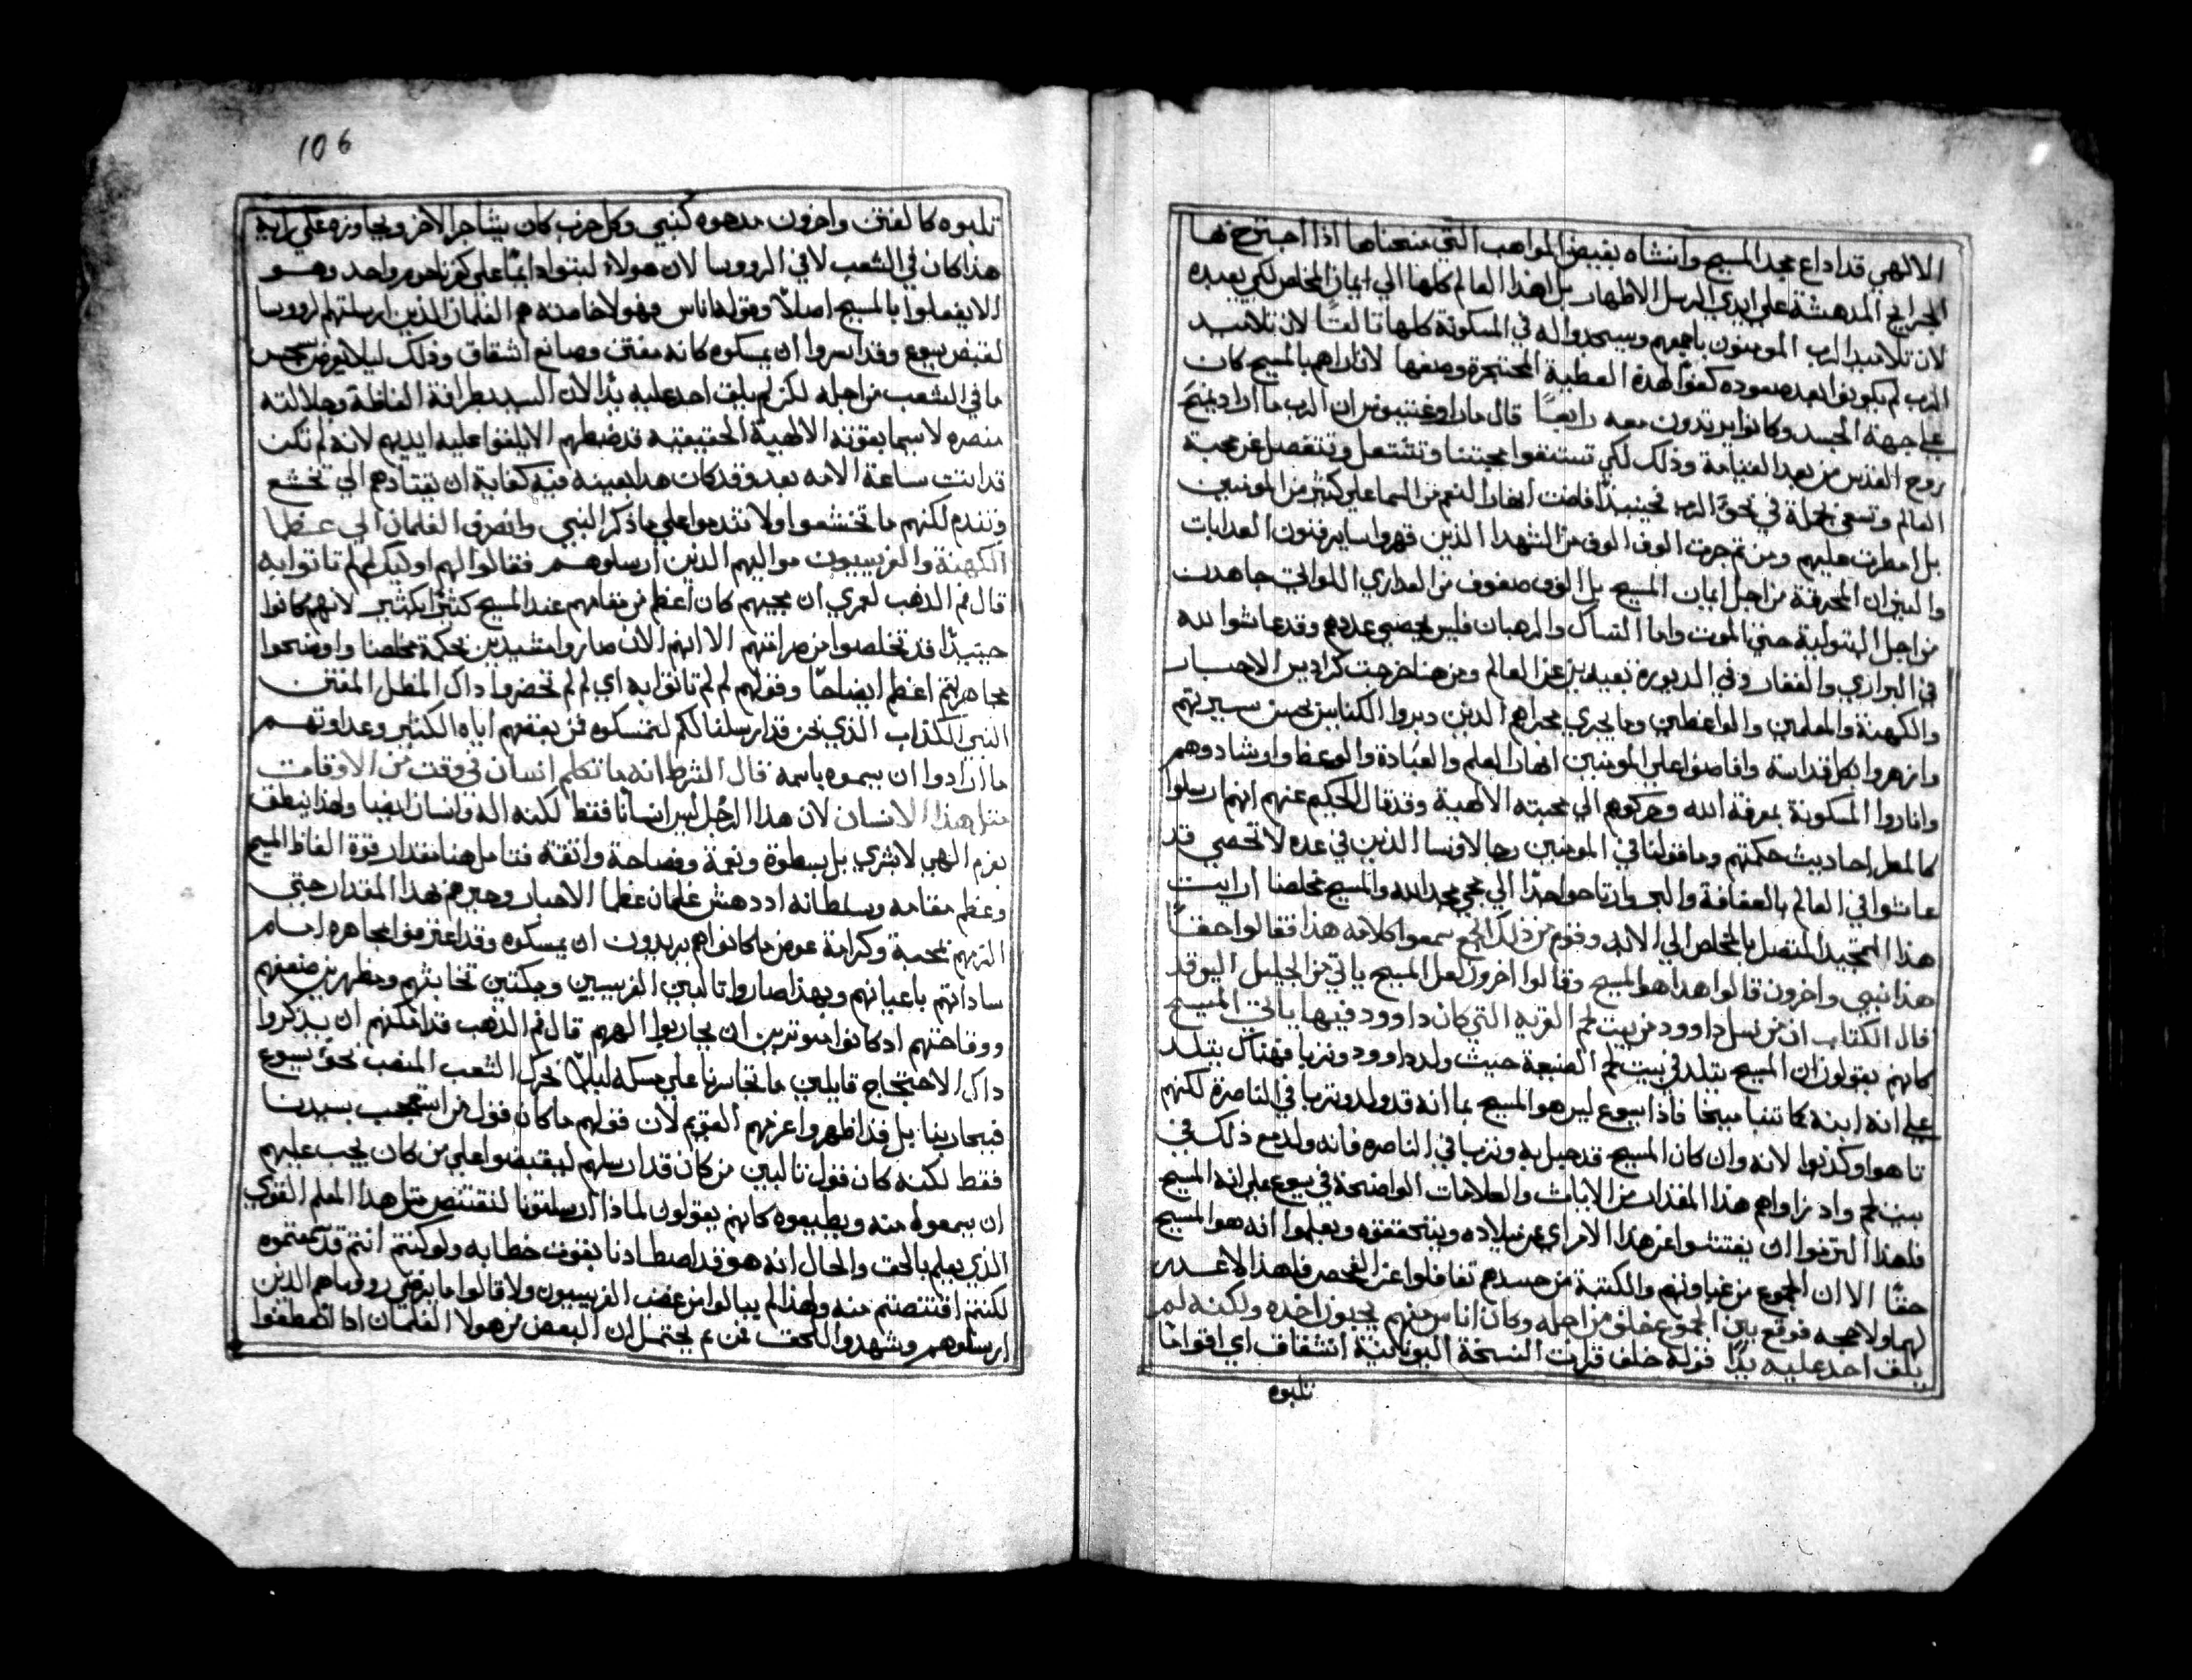 الالهي قد اداع مجد المسيح وانشاه بفيض المواهب التي منحناها اذا اجترح بها
الجرايح المدهشة علي ايدي الرسل الاطهار بل اهذا العالم كلها الي ايمان المخلص لكي يعبده
لان تلاميد الرب المومنون باجمعهم ويسجدوا له في المسكونة كلها ثالثًا لان تلاميد
الرب لم يكونوا بعد صعوده كفوًا لهذه العطية المحتجرة وصفها لان اراهم بالمسيح كان
علي جهة الجسد وكانوا يريدون معه رابعًا قال ماراوغسطينوس ان الرب ما اراد يمنح
روح القدس من بعد القيامة وذلك لكي تستنفوا محبتنا وتشتعل وتنفصل عن محبة
العالم وتسعي بجملة في نحو الرب فحينيدًا فاضت انهار النعم من السما علي كثير من المومنين
بل امطرت عليهم ومن ثم جرت الوف الوف من الشهدا الذين قهروا ساير فنون العدابات
والنيران المحرقة من اجل ايمان المسيح بل الوف صفوف من العداري اللواتي جاهدن
من اجل البتولية حتي الموت واما النساك والرهبان فليس يحصي عددهم وقد عاشوا لله
في البراري والقفار وفي الديورة بعيدين عن العالم ومن هنا خرجت كراديس الاحبار
والكهنة والمعلمين والواعظين وما يجري مجراهم الذين دبروا الكنايس بحسن سيرتهم
وازهروا بكل قداسة وافاضوا علي المومنين انهار العلم والعبادة والوعظ وارشادوهم
واناروا المسكونة بمعرفة الله وحركوهم الي محبته الالهية وقد قال الحكيم عنهم انهم ارسلوا
كالمطر احاديث حكمتهم وما قولنا في المومنين رجالا ونسا الذين في عده لا تحصي قد
عاشوا في العالم بالعفافة والبر وارتاحوا جدًا الي مجي مجد الله والمسيح مخلصنا ارايت
هذا التمجيد المتصل بالمخلص الي الابد وقوم من ذلك الجمع سمعوا كلامه هذا فقالوا حقًا
هذا نبيي واخرون قالوا هدا هو المسيح وقالوا اخرون لعل المسيح ياتي من الجليل اليس قد
قال الكتاب ان من نسل داوود من بيت لحم القريه التي كان داوود فيها ياتي المسيح
كانهم يقولون ان المسيح يتلد في بيت لحم الضيعة حيث ولد داوود وتربا فهناك يتلد
علي انه ابنه كما تنبا ميخا فاذا يسوع ليس هو المسيح بما انه قد ولد وتربا في الناصرة لكنهم
تاهوا وكذبوا لانه وان كان المسيح قد حبل به وتربا في الناصره فانه ولد مع ذلك في
بيت لحم واد راواهم هذا المقدار من الايات والعلامات الواضحة في يسوع علي انه المسيح
فلهذا التزموا ان يفتشوا عن هذا الامر اي عن ميلاده ويتحققوه ويعلموا انه هو المسيح
حقًا الا ان الجموع من غباوتهم والكتبة من حسدهم تغافلوا عن الفحص فلهذا لا عدر
لهم ولا حجه فوقع بين الجموع خلف من اجله وكان اناس منهم يحبون اخده ولكنه لم
يلق احد عليه يدًا قوله خلف قرات النسخة اليونانية انشقاق اي اقوامًا
تلبوه
106
تلبوه كالمفتن واخرون مدحوه كنبيي وكل حزب كان يشاجر الاخر ويجاوزه علي رايه
هذا كان في الشعب لا في الروسا لان هولاء لبتوا دايمًا علي كفرناحوم واحد وهو
الا يفعلوا بالمسيح اصلاً وقوله اناس فهولاخامته هم الغلمان الذين ارسلتهم الروسا
لقبض يسوع وقد امروا ان يمسكوه كانه مفتن وصانع اشقاق وذلك ليلا يعرض سجس
ما في الشعب من اجله لكن لم يلق احد عليه يدًا لان السيد بطرافة الفاظه وجلالته
منصره لاسيما بقوته الالهية الحقيقية قد ضبطهم الا يلقوا عليه ايديهم لانه لم تكن
قد اتت ساعة الامه بعد وقد كان هدا بعينه فيه كفاية ان يقتادهم الي تخشع
وتندم لكنهم ما تخشعوا ولا تندموا علي ما ذكر النبيي وانصرف الغلمان الي عظما
الكهنة والفريسيون مواليهم الدين ارسلوهم فقالوا لهم اوليك لم لم تاتوا به
قال فم الذهب لعمري ان مجيهم كان اعظم من مقامهم عند المسيح كثيرًا بكثير لانهم كانوا
حينيدًا قد تخلصوا من مرامتهم الا انهم الان صاروا مشيدين بحكمة مخلصنا واوضحوا
مجاهرتهم اعظم ايضاحًا وقولهم لم لم تاتوا به اي لم لم تحضروا داك المظل المفتن
النبيي الكذاب الذي نحن قد ارسلناكم لتمسكوه فمن بغضهم اياه الكثير وعداوتهم
ما ارادوا ان يسموه باسمه قال الشرط انه ما تكلم انسان في وقت من الاوقات
مثل هذا الانسان لان هذا الرجل ليس انسانًا فقط لكنه اله وانسان ايضا ولهذا ينطق
بفم الهي لا بشري بل بسطوة ونعمة وفصاحة واثقة فتامل هنا مقدار قوة الفاظ المسيح
وعظم مقامه وسلطانه اد دهش غلمان عظما الاحبار وحيرهم بهدا المقدار حتي
الزمهم بمحبة وكرامة عوض ما كانوا هم يريدون ان يمسكوه وقد اعترفوا مجاهره امام
ساداتهم باعيانهم وبهذا صاروا ثالبين الفريسيين ومبكتين تخابثهم ومظهرين ضعفهم
ووقاحتهم ادكانوا موترين ان يحاربوا الههم قال فم الذهب قد امكنهم ان يدكروا
داك الاحتجاج قايلين ما تجاسرنا علي مسكه ليلا تحرك الشعب المنصب نحو يسوع
فيحاربنا بل قد اظهروا عزمهم القويم لان قولهم ما كان قول من استعجب بسيدنا
فقط لكنه كان قول ثالبين من كان قد ارسلهم ليقبضوا علي من كان يجب عليهم
ان يسمعوا منه ويطيعوه كانهم يقولون لماذا ارسلتونا لنقتنص مثل هدا المعلم القوي
الذي يعلم بالحق والحال انه هو قد اصطادنا بقوت خطابه ولو كنتم انتم قد سمعتموه
لكنتم اقتنصتم منه ولهذا لم يبالوا من غضب الفريسيون ولا قالوا ما يرضي روساهم الذين
ارسلوهم وشهدوا للحق فمن ثم يحتمل ان البعض من هولا الغلمان ادا انعطفوا